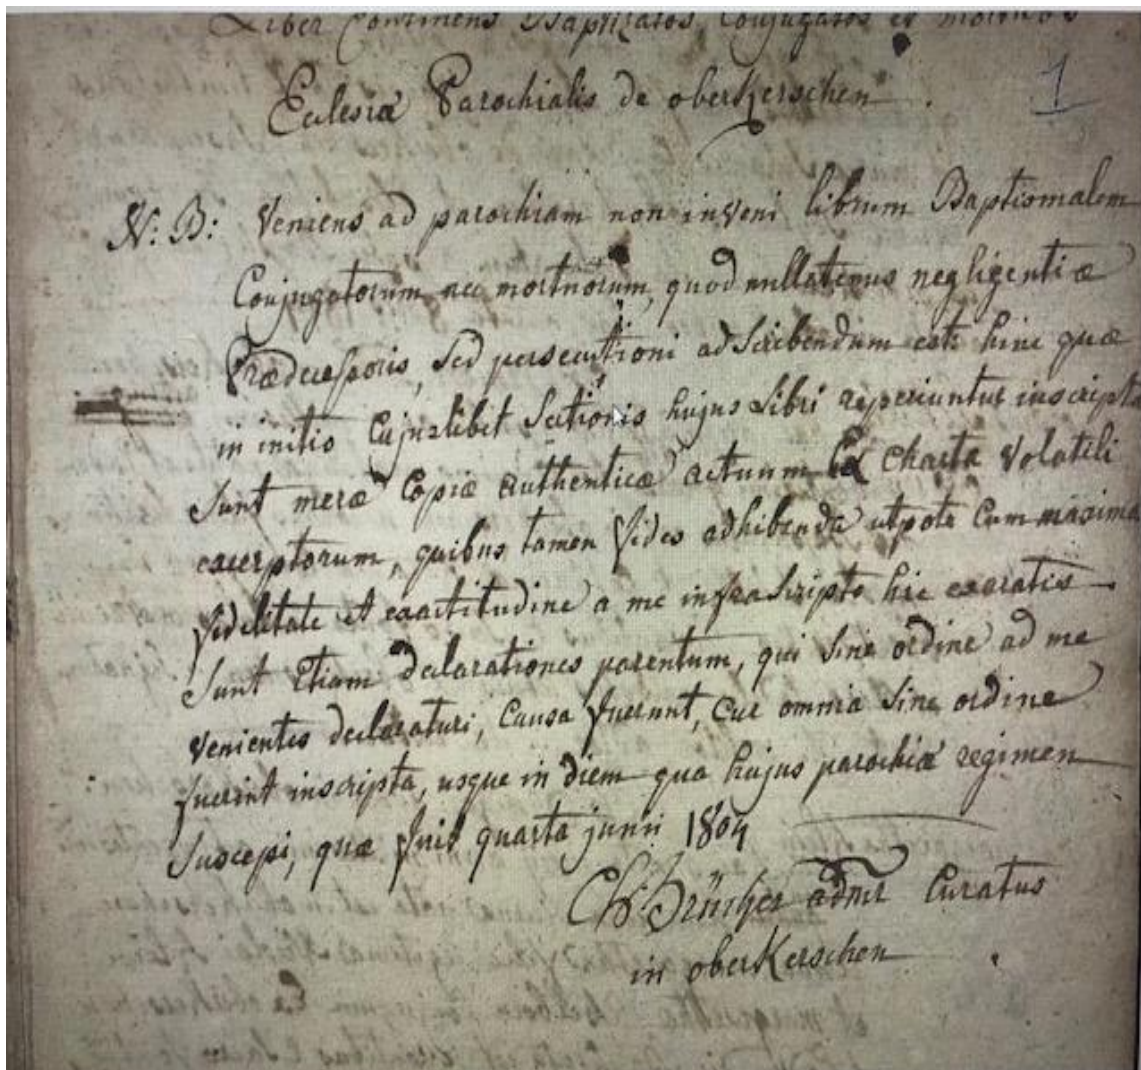 Liber Continens Baptizatos, Conjugatos et mortuos
Eclesiæ Parochialis de oberKerschen.
1
N: B: Veniens ad parochiam non inveni librum Baptismalem
Conjugatorum nec mortuorum, quod nullatenus negligentiæ
Prædecessoris, sed persecutioni adscribendum est: hinc quæ
in initio Cujuslibet Sectionis hujus Libri reperiuntur inscripta
sunt meræ Copiæ authenticæ actuum Ex charta Volatili
excerptorum, quibus tamen fides adhibenda utpote Cum maxima
fidelitate et exactitudine a me infrascripto hic exaratis
sunt Etiam declarationes parentum, qui sine ordine ad me
venientes declaraturi, Causa fuerunt, Cur omnia sine ordine
fuerint inscripta, usque in diem qua hujus parochiæ regimen
suscepi, quæ fuit quarta junii 1804
Ch: admr Curatus
in oberKerschen